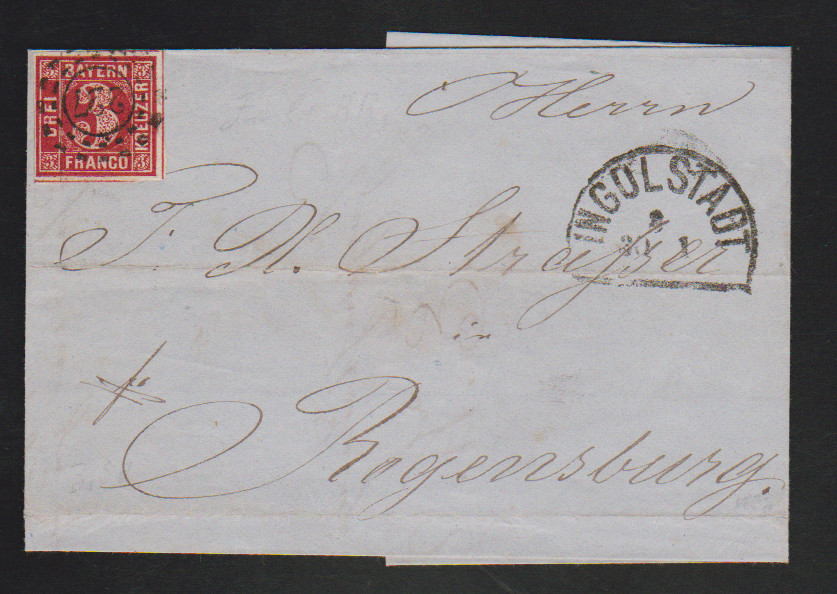 BAYERN
DREI
3
KREUZER
FRANCO
Herrn
INGOLSTADT
J. N. Strasser
in
fr
Regensburg.